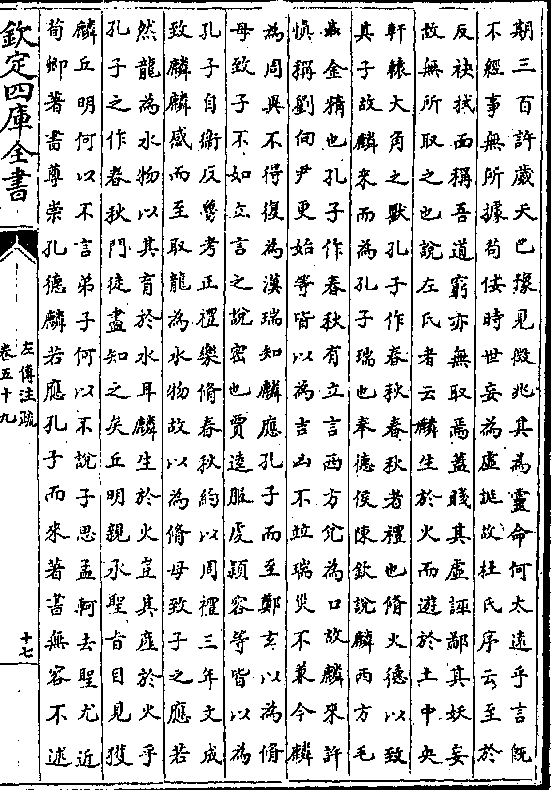 期三百許歲天已豫見徴兆其為靈命何太逺乎言既
不經事無所據苟佞時世妄為虚誕故杜氏序云至於
反袂拭面稱吾道窮亦無取焉蓋賤其虚誣鄙其妖妄
故無所取之也說左氏者云麟生於火而遊於土中央
軒轅大角之獸孔子作春秋春秋者禮也脩火德以致
其子故麟來而為孔子瑞也奉德侯陳欽說麟西方毛
蟲金精也孔子作春秋有立言西方兌為口故麟來許
慎稱劉向尹更始等皆以為吉凶不竝瑞災不兼今麟
為周異不得復為漢瑞知麟應孔子而至鄭𤣥以為脩
母致子不如立言之說密也賈逵服䖍頴容等皆以為
孔子自衛反魯考正禮樂脩春秋約以周禮三年文成
致麟麟感而至取龍為水物故以為脩母致子之應若
然龍為水物以其育於水耳麟生於火豈其産於火乎
孔子之作春秋門徒盡知之矣丘明親承聖旨目見獲
麟丘明何以不言弟子何以不說子思孟軻去聖尤近
荀卿著書尊崇孔德麟若應孔子而來著書無容不述
欽定四庫全書
左傳注疏
卷五十九
十七